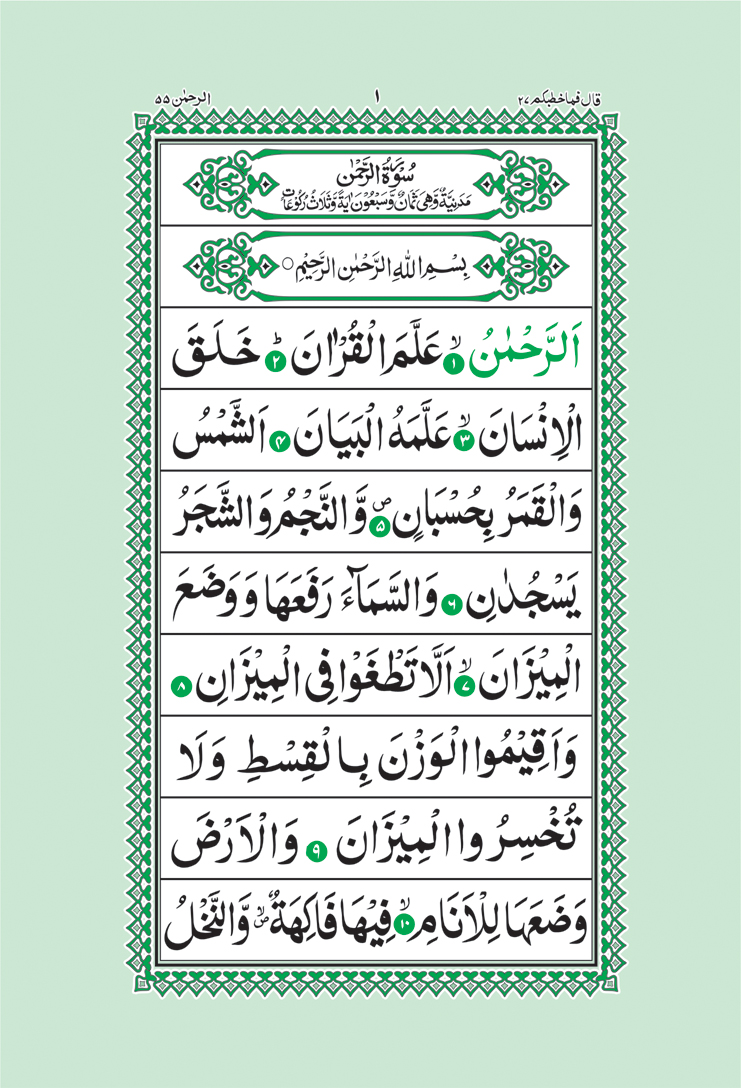 قال فما خطبکم ۲۷
۱
الرحمٰن ۵۵
سُوۡرَةُ الرَّحۡمٰنِ
مَدَنِیَّةٌ وَّهِیَ ثَمَانٌ وَّسَبۡعُوۡنَ اٰیَةً وَّثَلَاثُ رُکُوۡعَاتٍ
بِسۡمِ اللّٰهِ الرَّحۡمٰنِ الرَّحِیۡمِ ○
اَلرَّحۡمٰنُ ۙ﴿۱﴾ عَلَّمَ الۡقُرۡاٰنَ ؕ﴿۲﴾ خَلَقَ
الۡاِنۡسَانَ ۙ﴿۳﴾ عَلَّمَهُ الۡبَیَانَ ﴿۴﴾ اَلشَّمۡسُ
وَالۡقَمَرُ بِحُسۡبَانٍ ۪﴿۵﴾ وَّالنَّجۡمُ وَالشَّجَرُ
یَسۡجُدٰنِ ﴿۶﴾ وَالسَّمَآءَ رَفَعَهَا وَوَضَعَ
الۡمِیۡزَانَ ۙ﴿۷﴾ اَلَّا تَطۡغَوۡا فِی الۡمِیۡزَانِ ﴿۸﴾
وَاَقِیۡمُوا الۡوَزۡنَ بِالۡقِسۡطِ وَلَا
تُخۡسِرُوا الۡمِیۡزَانَ ﴿۹﴾ وَالۡاَرۡضَ
وَضَعَهَا لِلۡاَنَامِ ۙ﴿۱۰﴾ فِیۡهَا فَاکِهَةٌ ۪ۙ وَّالنَّخۡلُ